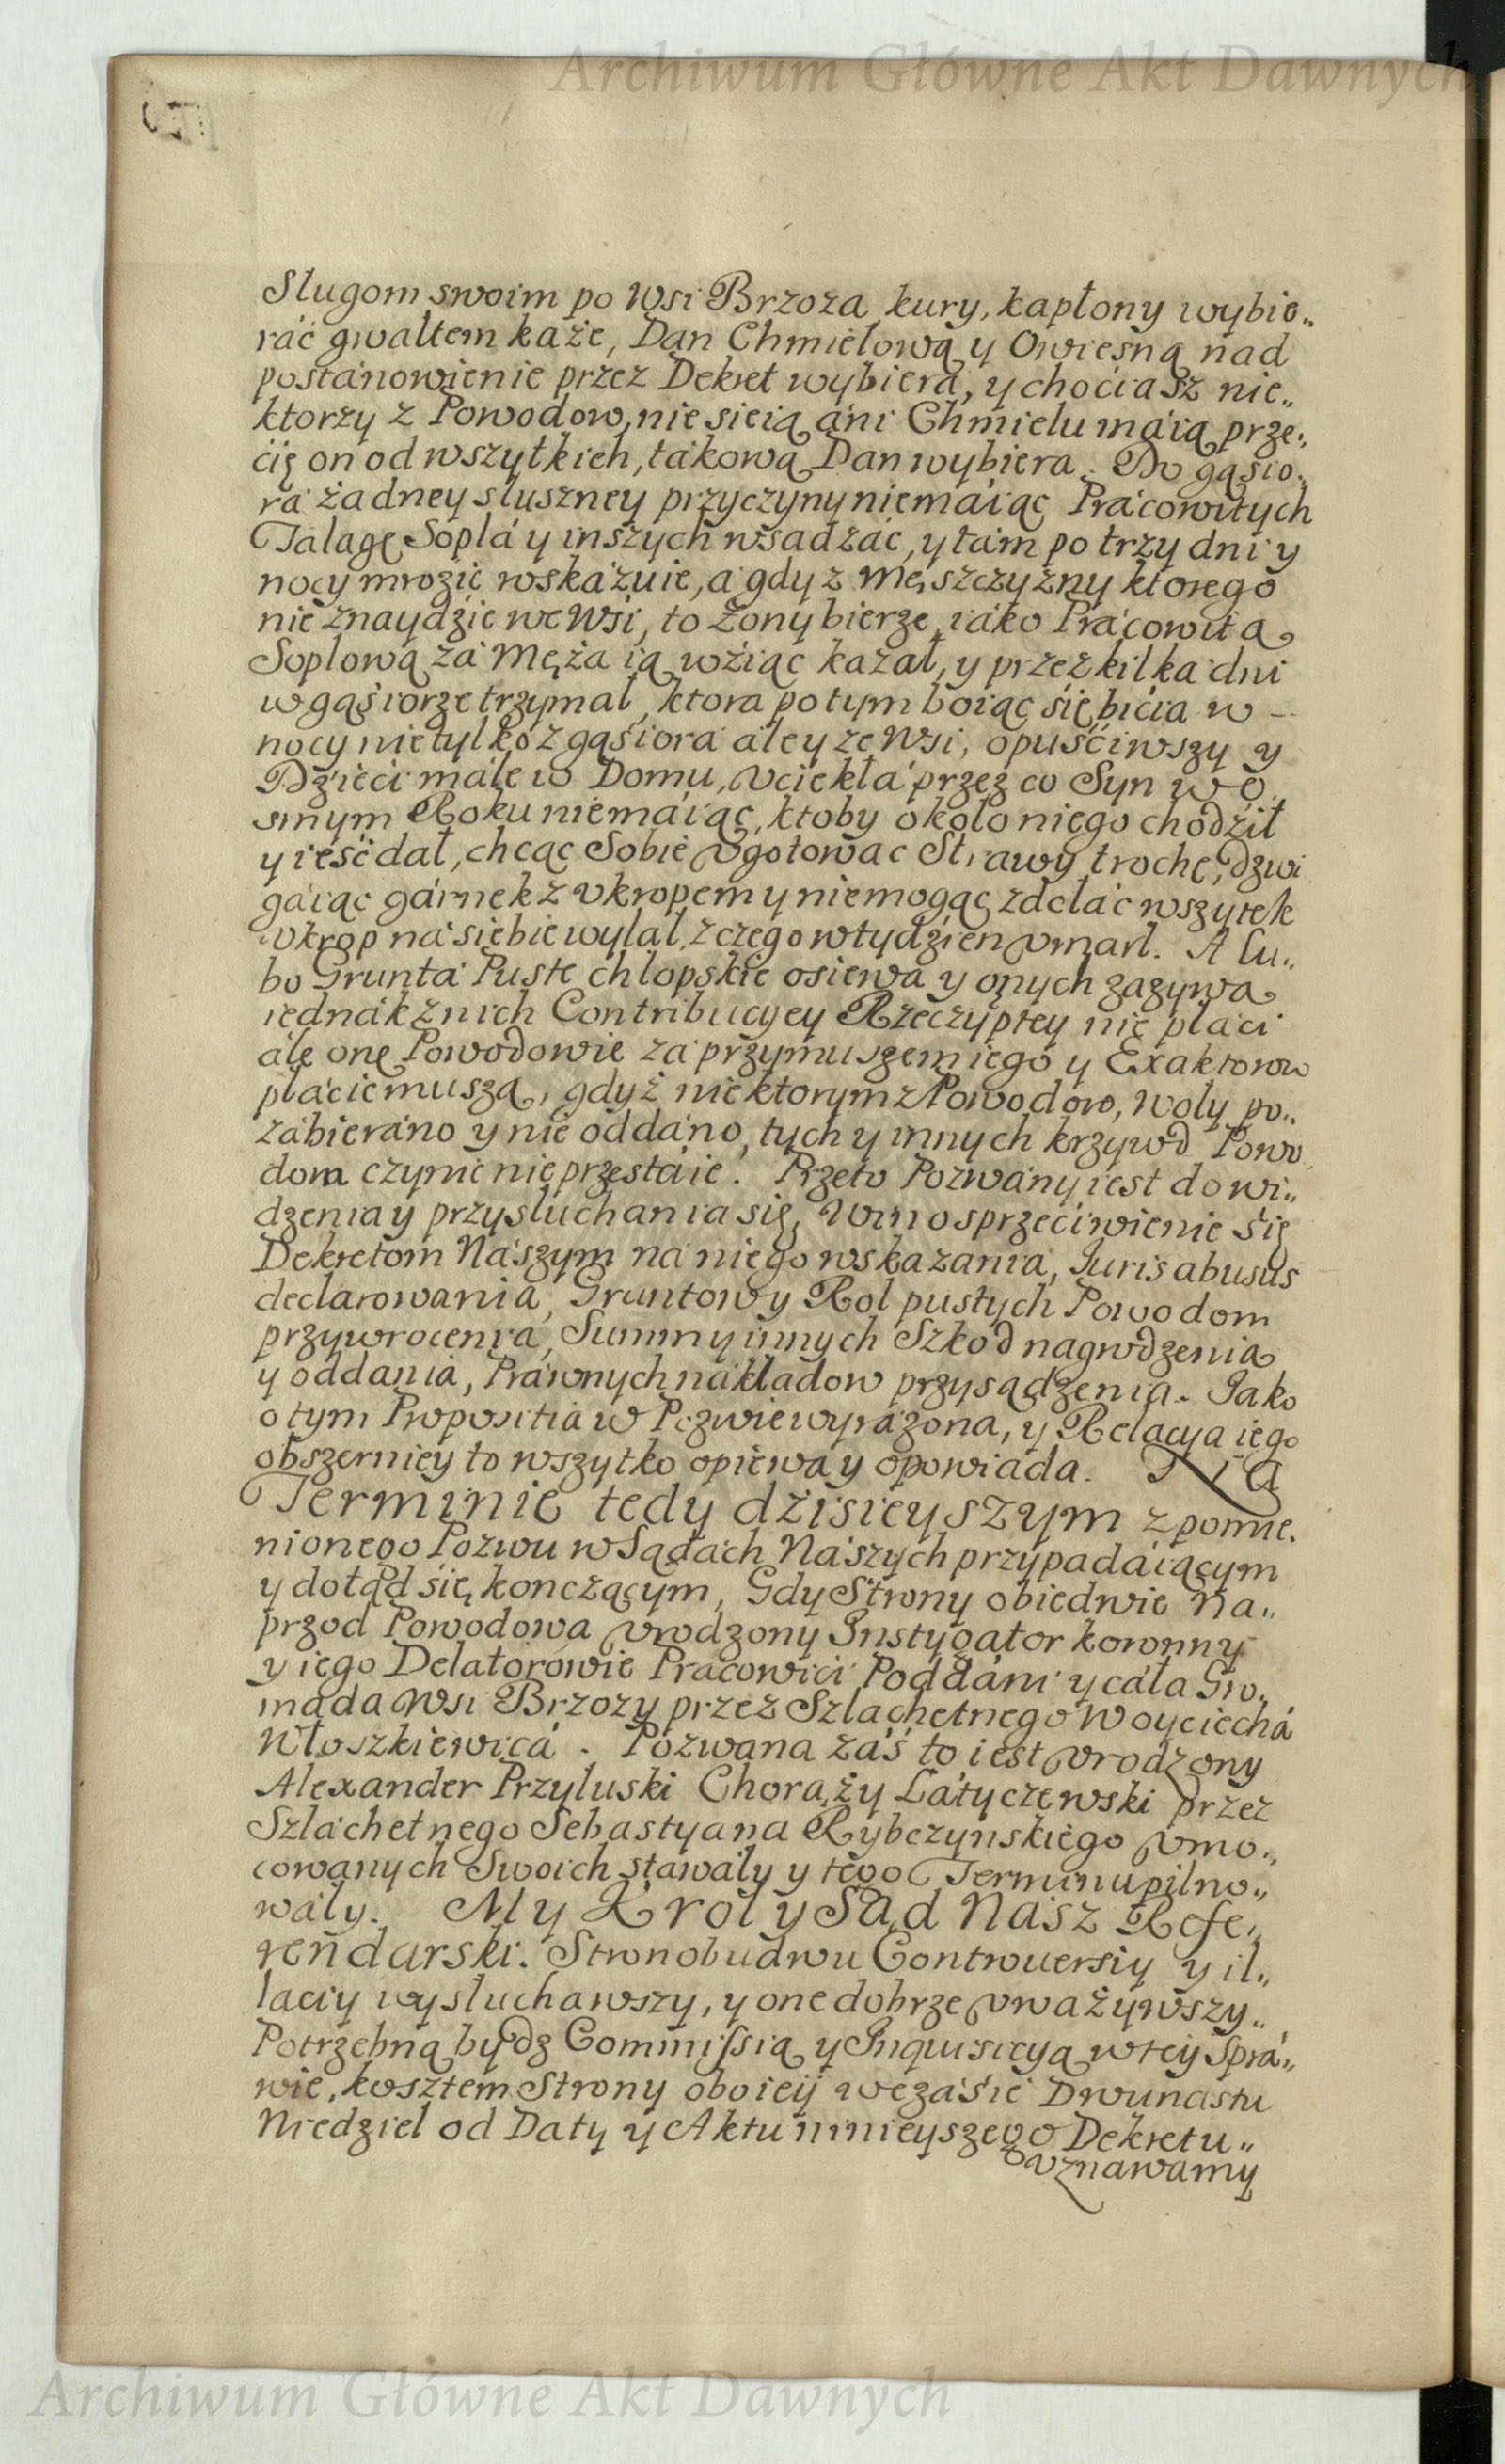 Archiwum Główne Akt Dawnych
Slugom swoim po Wsi Brzoza kury, kapłony wybie„
ráć gwałtem każe, Dan Chmielową y Owiesną nad
postánowienie przez Dekret wybierá, y chociasz nie„
ktorzy z Powodow, nie sieią áni Chmielu máią prze„
cię on od wszytkich, tákową Dan wybiera. Do gąsio„
rá żadney sluszney przyczyny niemáiąc Prácowitych
Tálagę Soplá y inszych wsadzáć, y tám po trzy dni y
nocy mrozić wskázuie, á gdy z Męszczyżny ktorego
nie znaydzie we Wsi, to Zony bierze, iáko Prácowitą
Soplową zá Mężá ią wziąc kazał, y przez kilka dni
w gąsiorze trzymał, ktora potym boiąc się bicia w –
nocy nie tylko z gąsiorá ále y ze Wsi, opuściwszy y
Dzieci małe w Domu, vciekłá przez co Syn w o„
smym Roku niemáiąc, ktoby około niego chodził
y ieść dał, chcąc Sobie vgotowac Strawy trochę, dzwi
gáiąc gárnek z vkropem y niemogąc zdeláć wszytek
vkrop ná siebie wylał, z czego w tydzien vmarł. A lu„
bo Gruntá Puste chlopskie osiewá y onych zazywa
iednák z nich Contribucyey Rzeczyptey nie płáci
ále one Powodowie zá przymuszeniem iego y Exaktorow
płácic muszą, gdyż niektorym z Powodow, Woły po„
zábieráno y nie oddáno, tych y innych krzywd Powo
dom czynic nie przestáie. Przeto Pozwány iest do wi„
dzenia y przysłuchania się, Win o sprzeciwienie się
Dekretom Nászym ná niego wskazánia, Iuris abusus
declarowaniá, Gruntow y Rol pustych Powodom
przywroceniá, Summ y innych Szkod nagrodzenia
y oddaniá, Práwnych nákładow przysądzenia. Jako
o tym Propositia w Pozwie wyrázona, y Relacya iego
obszerniey to wszytko opiewá y opowiáda. Na
Terminie tedy dzisieyszym z pomie„
nionego Pozwu w Sądách Nászych przypadáiącym
y dotąd się kończącym, Gdy Strony obiedwie Na„
przod Powodowa vrodzony Instygator koronny
y iego Delatorowie Pracowici Poddáni y cáła Gro„
mada Wsi Brzozy przez Szlachetnego Woyciechá
Włoszkiewicá. Pozwana záś to iest vrodzony
Alexander Przyluski Chorąży Látyczewski przez
Szláchetnego Sebastyana Rybczynskiego vmo„
cowanych Swoich stawáły y tego Terminu pilno„
wáły. My Krol y Sąd Nász Refe„
rendarski. Stron obudwu Controuersiy y il„
laciy wysłuchawszy, y one dobrze vważywszy„
Potrzebną bydz Commissią y Inquisicyą w tey Sprá„
wie, kosztem Strony oboiey w czásie Dwunastu
Niedziel od Daty y Aktu ninieyszego Dekretu„
vznawamy
Archiwum Główne Akt Dawnych